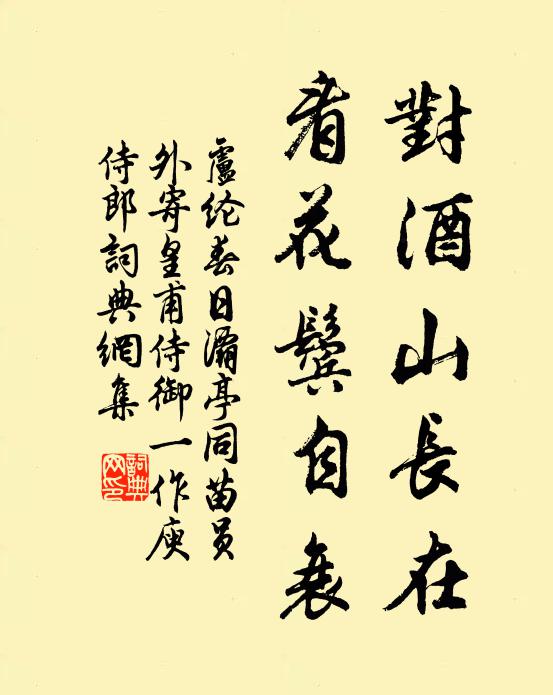 對酒山長在
看花鬢自衰
盧纶春日灞亭同苗員
外寄皇甫侍御一作庾
侍郎詞典網集
詞典
网印